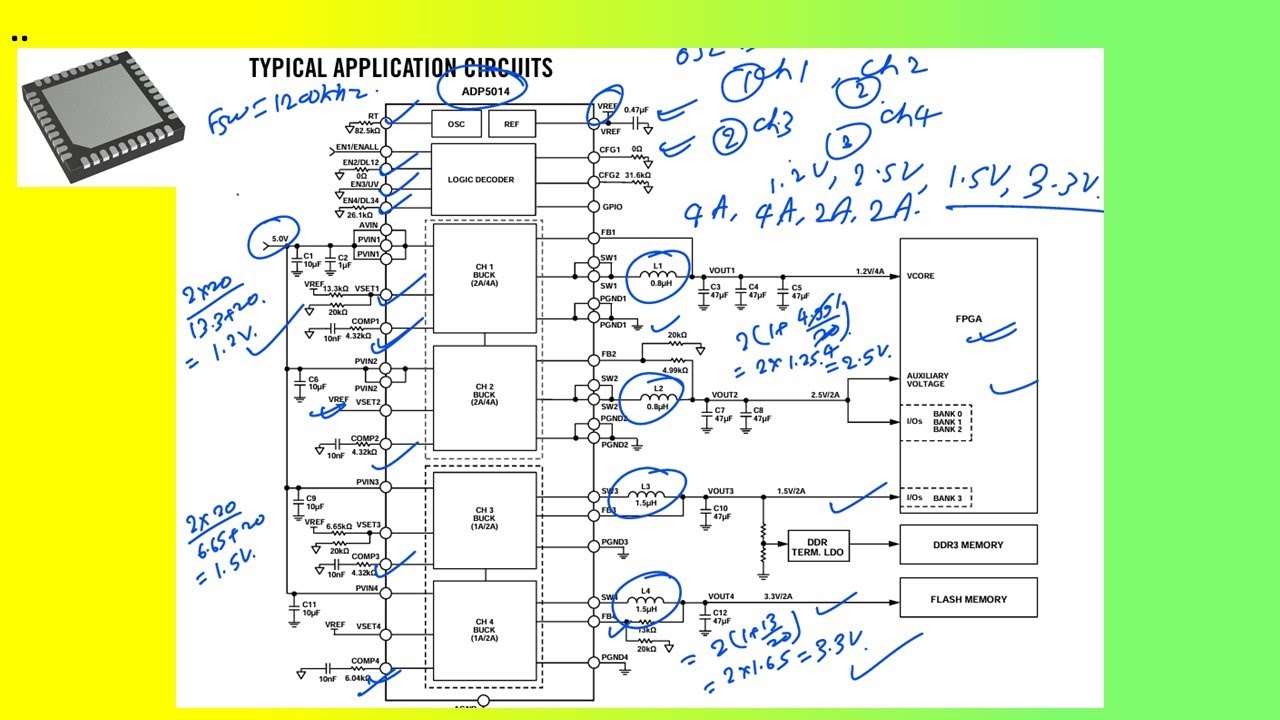 ..
TYPICAL APPLICATION CIRCUITS
ADP5014
FSW = 1200khz.
① Ch1
② Ch2
② Ch3
③ Ch4
1.2V, 2.5V, 1.5V, 3.3V.
4A, 4A, 2A, 2A.
RT
82.5kΩ
OSC
REF
VREF
0.47µF
VREF
EN1/ENALL
EN2/DL12
0Ω
EN3/UV
EN4/DL34
26.1kΩ
LOGIC DECODER
CFG1
0Ω
CFG2
31.6kΩ
GPIO
5.0V
AVIN
PVIN1
PVIN1
C1
10µF
C2
1µF
VREF
13.3kΩ
VSET1
20kΩ
COMP1
10nF
4.32kΩ
CH 1
BUCK
(2A/4A)
FB1
SW1
SW1
PGND1
PGND1
L1
0.8µH
VOUT1
1.2V/4A
C3
47µF
C4
47µF
C5
47µF
VCORE
FPGA
2×20
13.3+20.
= 1.2V.
PVIN2
PVIN2
C6
10µF
VREF
VSET2
COMP2
10nF
4.32kΩ
CH 2
BUCK
(2A/4A)
FB2
20kΩ
4.99kΩ
SW2
SW2
PGND2
PGND2
L2
0.8µH
VOUT2
2.5V/2A
C7
47µF
C8
47µF
2(1+ 4.99/20).
= 2×1.25 = 2.5V.
AUXILIARY
VOLTAGE
I/Os
BANK 0
BANK 1
BANK 2
PVIN3
C9
10µF
VREF
6.65kΩ
VSET3
20kΩ
COMP3
10nF
4.32kΩ
CH 3
BUCK
(1A/2A)
SW3
FB3
PGND3
L3
1.5µH
VOUT3
1.5V/2A
C10
47µF
I/Os
BANK 3
DDR
TERM. LDO
DDR3 MEMORY
2×20
6.65+20
= 1.5V.
PVIN4
C11
10µF
VREF
VSET4
COMP4
10nF
6.04kΩ
CH 4
BUCK
(1A/2A)
SW4
FB4
PGND4
L4
1.5µH
13kΩ
20kΩ
VOUT4
3.3V/2A
C12
47µF
FLASH MEMORY
= 2(1+13/20)
= 2×1.65 = 3.3V.